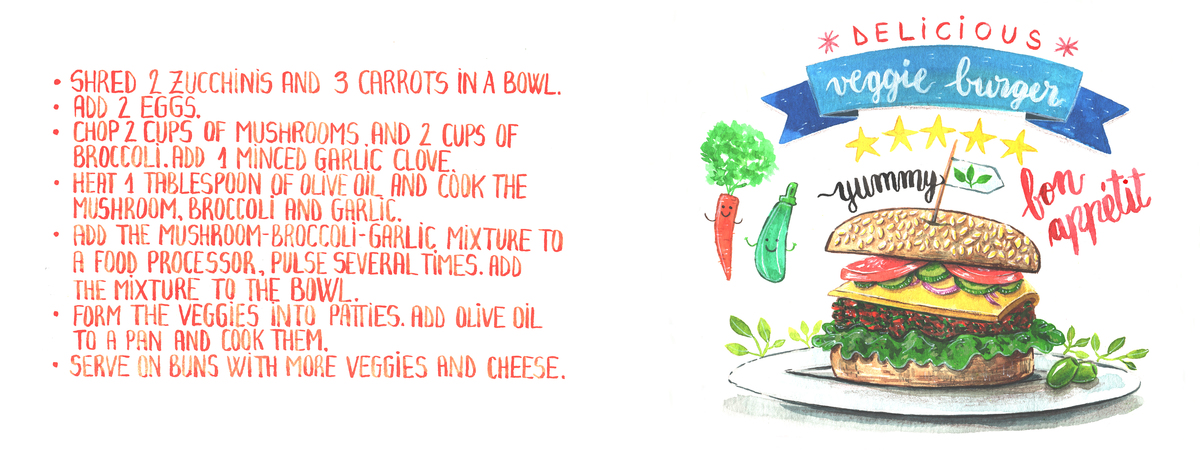 • SHRED 2 ZUCCHINIS AND 3 CARROTS IN A BOWL.
• ADD 2 EGGS.
• CHOP 2 CUPS OF MUSHROOMS AND 2 CUPS OF
BROCCOLI. ADD 1 MINCED GARLIC CLOVE.
• HEAT 1 TABLESPOON OF OLIVE OIL AND COOK THE
MUSHROOM, BROCCOLI AND GARLIC.
• ADD THE MUSHROOM-BROCCOLI-GARLIC MIXTURE TO
A FOOD PROCESSOR, PULSE SEVERAL TIMES. ADD
THE MIXTURE TO THE BOWL.
• FORM THE VEGGIES INTO PATTIES. ADD OLIVE OIL
TO A PAN AND COOK THEM.
• SERVE ON BUNS WITH MORE VEGGIES AND CHEESE.
DELICIOUS
veggie burger
yummy
bon
appétit